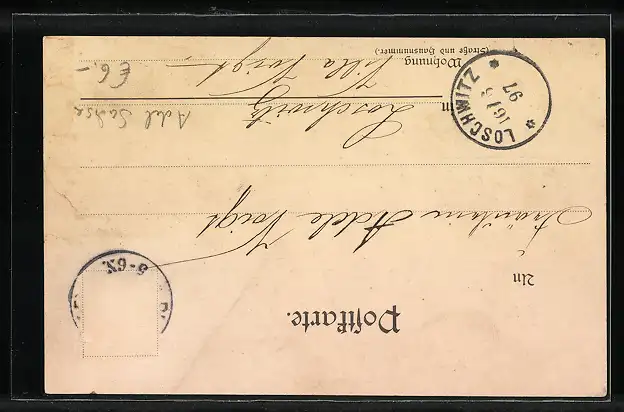 Postkarte.
An
Fräulein Adele Voigt
in Loschwitz
Wohnung Villa Voigt
(Straße und Hausnummer.)
LOSCHWITZ
16/5
97
5-6N.
Adel Sachse
€ 6,-